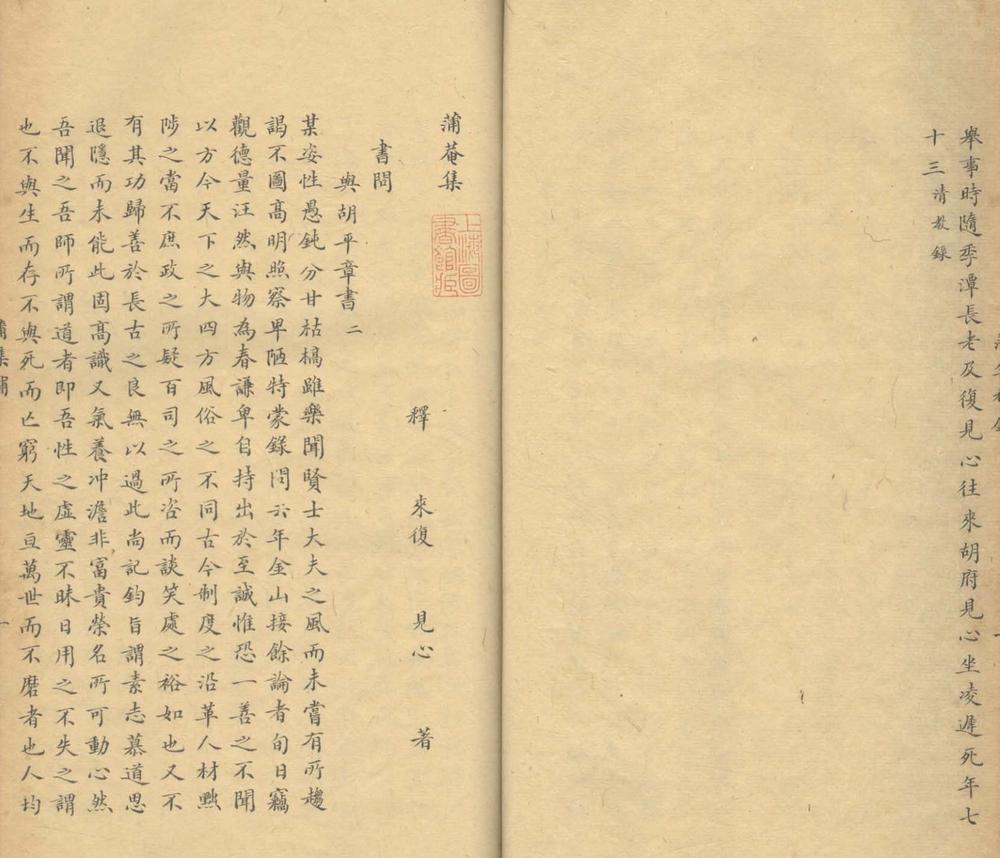 舉事時隨季潭長老及復見心往來胡府見心坐凌遲死年七
十三清教錄
蒲菴集
上海圖書館藏
釋 來復 見心 著
書問
與胡平章書二
某姿性愚鈍分甘枯槁雖樂聞賢士大夫之風而未嘗有所趨
謁不圖高明照察卑陋特蒙錄問六年金山接餘論者旬日竊
觀德量汪然與物為春謙卑自持出於至誠惟恐一善之不聞
以方今天下之大四方風俗之不同古今制度之沿革人材黜
陟之當不庶政之所疑百司之所咨而談笑處之裕如也又不
有其功歸善於長古之良無以過此尚記鈞旨謂素志慕道思
退隱而未能此固高識又氣養冲澹非富貴榮名所可動心然
吾聞之吾師所謂道者即吾性之虛靈不昧日用之不失之謂
也不與生而存不與死而亡窮天地亘萬世而不磨者也人均